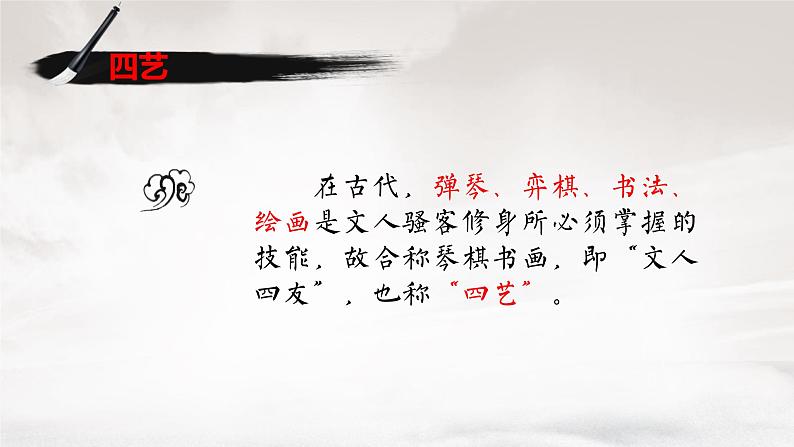 四艺
在古代，弹琴、弈棋、书法、
绘画是文人骚客修身所必须掌握的
技能，故合称琴棋书画，即“文人
四友”，也称“四艺”。